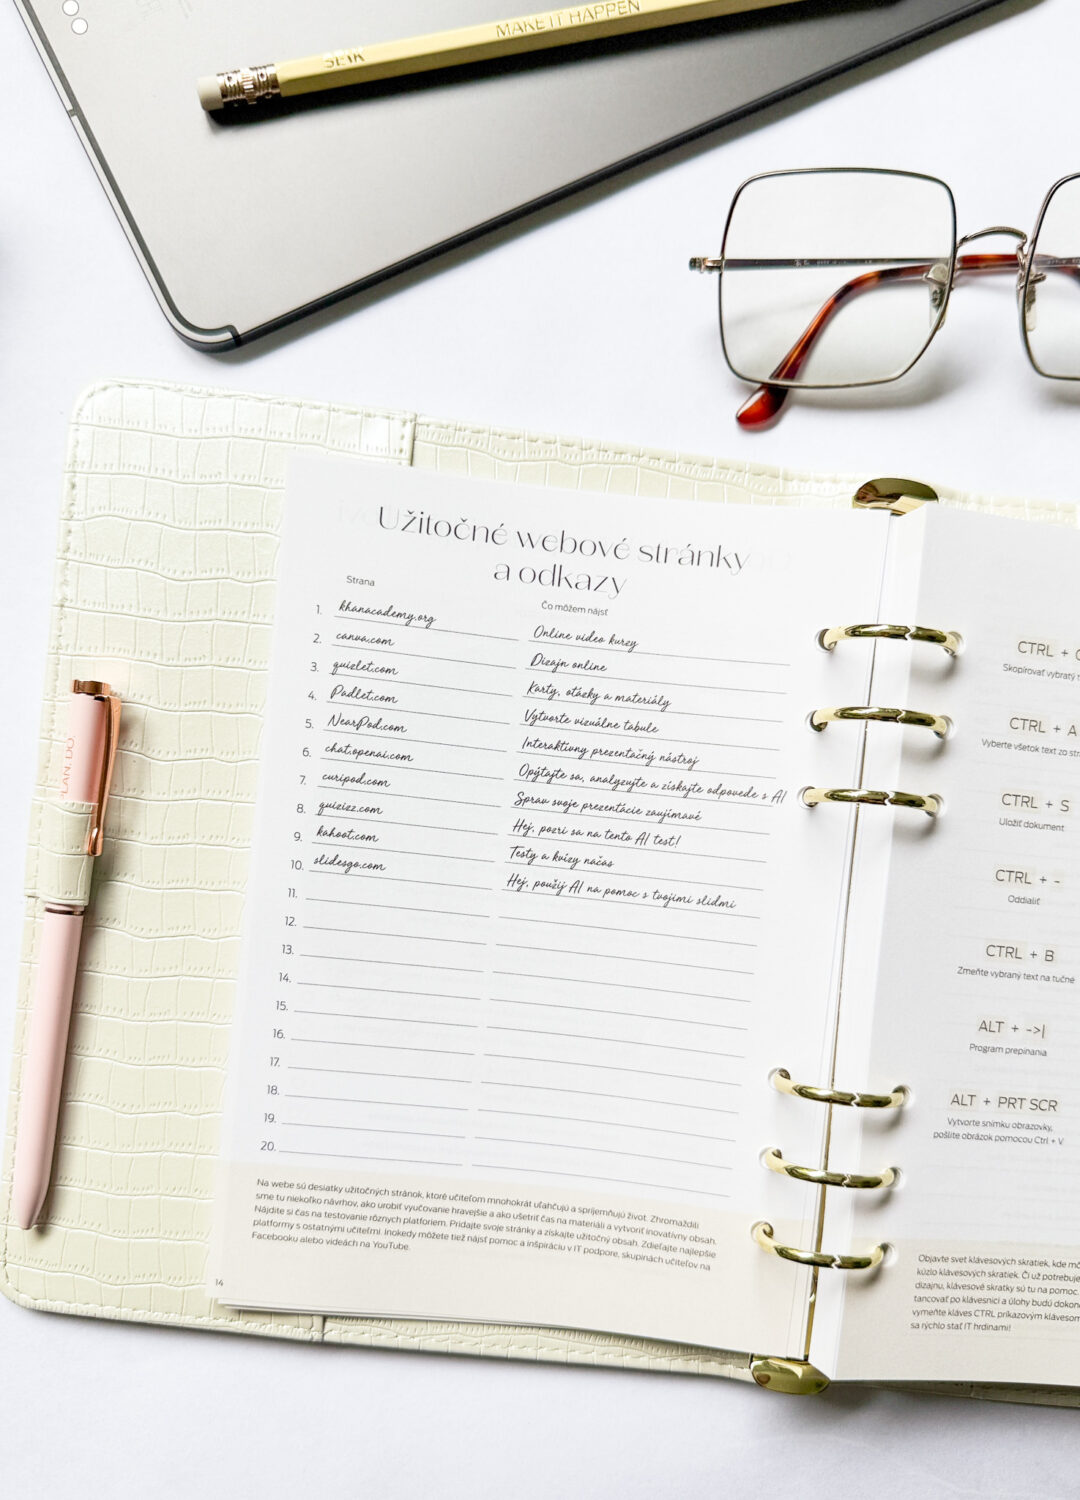 MAKE IT HAPPEN
Užitočné webové stránky
a odkazy
Strana
Čo môžem nájsť
1. khanacademy.org Online video kurzy
2. canva.com Dizajn online
3. quizlet.com Karty, otázky a materiály
4. Padlet.com Vytvorte vizuálne tabule
5. NearPod.com Interaktívny prezentačný nástroj
6. chat.openai.com Opýtajte sa, analyzujte a získajte odpovede s AI
7. curipod.com Sprav svoje prezentácie zaujímavé
8. quizizz.com Hej, pozri sa na tento AI test!
9. kahoot.com Testy a kvízy načas
10. slidesgo.com Hej, použij AI na pomoc s tvojimi slidmi
11.
12.
13.
14.
15.
16.
17.
18.
19.
20.
Na webe sú desiatky užitočných stránok, ktoré učiteľom mnohokrát uľahčujú a spríjemňujú život. Zhromaždili
sme tu niekoľko návrhov, ako urobiť vyučovanie hravejšie a ako ušetriť čas na materiáli a vytvoriť inovatívny obsah.
Nájdite si čas na testovanie rôznych platforiem. Pridajte svoje stránky a získajte užitočný obsah. Zdieľajte najlepšie
platformy s ostatnými učiteľmi. Inokedy môžete tiež nájsť pomoc a inšpiráciu v IT podpore, skupinách učiteľov na
Facebooku alebo videách na YouTube.
14
CTRL +
Skopírovať vybratý
CTRL + A
Vyberte všetok text zo
CTRL + S
Uložiť dokument
CTRL + -
Oddialiť
CTRL + B
Zmeňte vybraný text na tučné
ALT + ->|
Program prepínania
ALT + PRT SCR
Vytvorte snímku obrazovky,
pošlite obrázok pomocou Ctrl + V
Objavte svet klávesových skratiek, kde
kúzlo klávesových skratiek. Či už potrebuje
dizajnu, klávesové skratky sú tu na pomoc.
tancovať po klávesnici a úlohy budú
vymeňte kláves CTRL príkazovým
sa rýchlo stať IT hrdinami!
PLAN. DO.